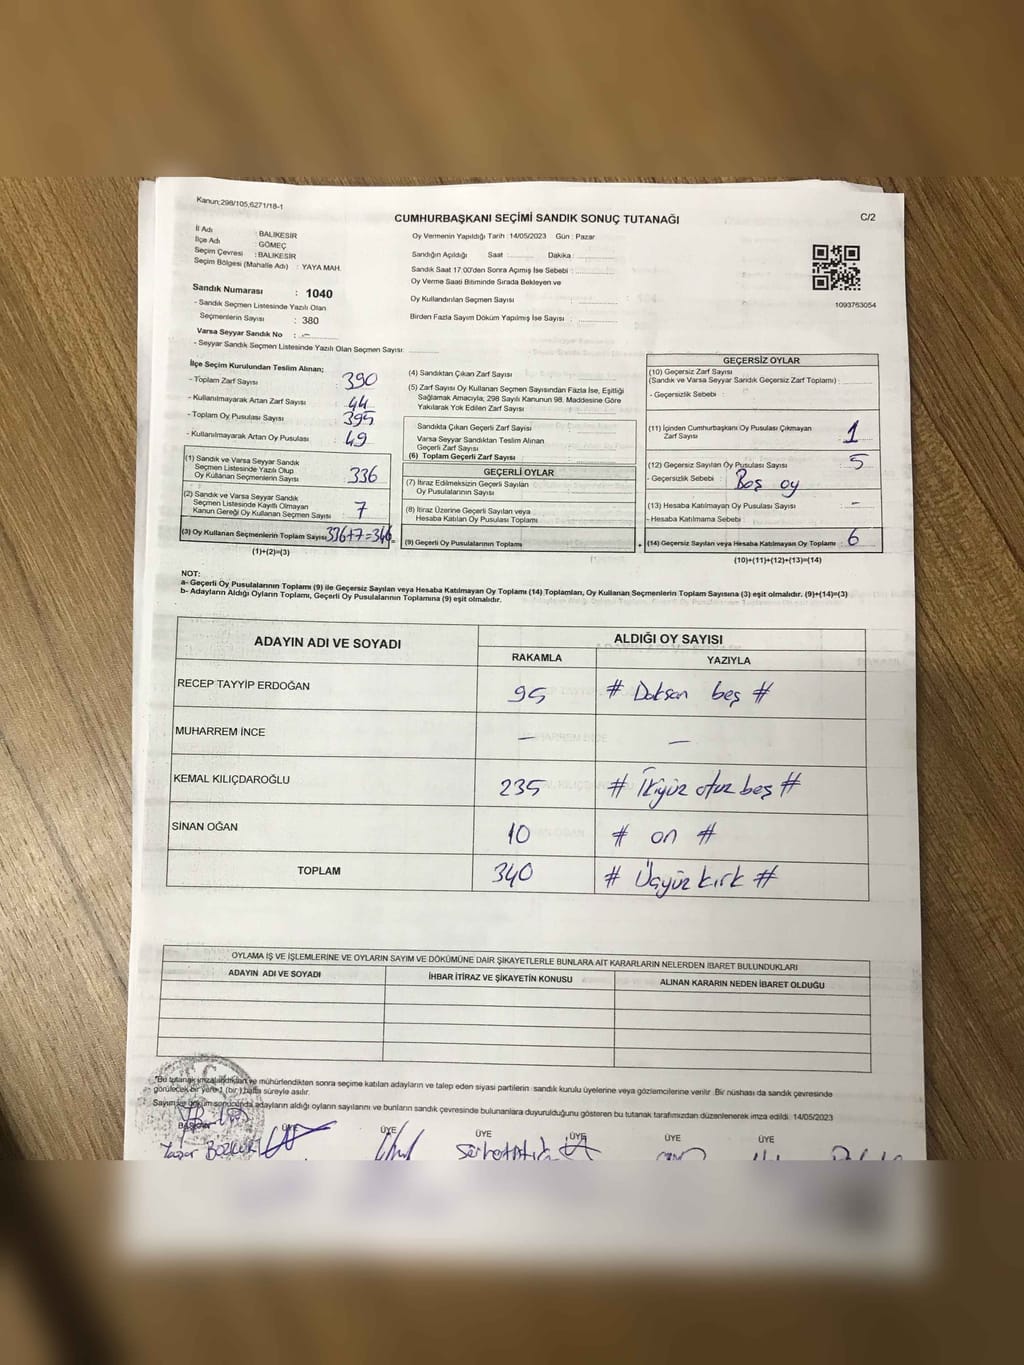 Kanun;298/105,6271/18-1
CUMHURBAŞKANI SEÇİMİ SANDIK SONUÇ TUTANAĞI
C/2
İl Adı : BALIKESİR
İlçe Adı : GÖMEÇ
Seçim Çevresi : BALIKESİR
Seçim Bölgesi (Mahalle Adı) : YAYA MAH.
Oy Vermenin Yapıldığı Tarih : 14/05/2023 Gün : Pazar
Sandığın Açıldığı Saat :......... Dakika :.........
Sandık Saat 17:00'den Sonra Açımış İse Sebebi :
Oy Verme Saati Bitiminde Sırada Bekleyen ve
Oy Kullandırılan Seçmen Sayısı :
Birden Fazla Sayım Döküm Yapılmış İse Sayısı :
1093763054
Sandık Numarası : 1040
- Sandık Seçmen Listesinde Yazılı Olan
Seçmenlerin Sayısı : 380
Varsa Seyyar Sandık No : -
- Seyyar Sandık Seçmen Listesinde Yazılı Olan Seçmen Sayısı:
İlçe Seçim Kurulundan Teslim Alınan;
- Toplam Zarf Sayısı : 390
- Kullanılmayarak Artan Zarf Sayısı : 44
- Toplam Oy Pusulası Sayısı : 395
- Kullanılmayarak Artan Oy Pusulası : 49
(1) Sandık ve Varsa Seyyar Sandık
Seçmen Listesinde Yazılı Olup
Oy Kullanan Seçmenlerin Sayısı : 336
(2) Sandık ve Varsa Seyyar Sandık
Seçmen Listesinde Kayıtlı Olmayan
Kanun Gereği Oy Kullanan Seçmen Sayısı : 7
(3) Oy Kullanan Seçmenlerin Toplam Sayısı 336+7=346
(1)+(2)=(3)
(4) Sandıktan Çıkan Zarf Sayısı :
(5) Zarf Sayısı Oy Kullanan Seçmen Sayısından Fazla İse, Eşitliği
Sağlamak Amacıyla; 298 Sayılı Kanunun 98. Maddesine Göre
Yakılarak Yok Edilen Zarf Sayısı :
Sandıkta Çıkan Geçerli Zarf Sayısı :
Varsa Seyyar Sandıktan Teslim Alınan
Geçerli Zarf Sayısı :
(6) Toplam Geçerli Zarf Sayısı :
GEÇERLİ OYLAR
(7) İtiraz Edilmeksizin Geçerli Sayılan
Oy Pusulalarının Sayısı :
(8) İtiraz Üzerine Geçerli Sayılan veya
Hesaba Katılan Oy Pusulası Toplamı :
(9) Geçerli Oy Pusulalarının Toplamı :
GEÇERSİZ OYLAR
(10) Geçersiz Zarf Sayısı
(Sandık ve Varsa Seyyar Sandık Geçersiz Zarf Toplamı) :
- Geçersizlik Sebebi :
(11) İçinden Cumhurbaşkanı Oy Pusulası Çıkmayan
Zarf Sayısı : 1
(12) Geçersiz Sayılan Oy Pusulası Sayısı : 5
- Geçersizlik Sebebi : Boş oy
(13) Hesaba Katılmayan Oy Pusulası Sayısı : -
- Hesaba Katılmama Sebebi :
+ (14) Geçersiz Sayılan veya Hesaba Katılmayan Oy Toplamı : 6
(10)+(11)+(12)+(13)=(14)
NOT:
a- Geçerli Oy Pusulalarının Toplamı (9) ile Geçersiz Sayılan veya Hesaba Katılmayan Oy Toplamı (14) Toplamları, Oy Kullanan Seçmenlerin Toplam Sayısına (3) eşit olmalıdır. (9)+(14)=(3)
b- Adayların Aldığı Oyların Toplamı, Geçerli Oy Pusulalarının Toplamına (9) eşit olmalıdır.
ADAYIN ADI VE SOYADI
ALDIĞI OY SAYISI
RAKAMLA YAZIYLA
RECEP TAYYİP ERDOĞAN 95 # Doksan beş #
MUHARREM İNCE – –
KEMAL KILIÇDAROĞLU 235 # İkiyüz otuz beş #
SİNAN OĞAN 10 # on #
TOPLAM 340 # Üçyüz kırk #
OYLAMA İŞ VE İŞLEMLERİNE VE OYLARIN SAYIM VE DÖKÜMÜNE DAİR ŞİKAYETLERLE BUNLARA AİT KARARLARIN NELERDEN İBARET BULUNDUKLARI
ADAYIN ADI VE SOYADI İHBAR İTİRAZ VE ŞİKAYETİN KONUSU ALINAN KARARIN NEDEN İBARET OLDUĞU
*Bu tutanak imzalandıktan ve mühürlendikten sonra seçime katılan adayların ve talep eden siyasi partilerin sandık kurulu üyelerine veya gözlemcilerine verilir. Bir nüshası da sandık çevresinde
görülecek bir yere 1 (bir) hafta süreyle asılır.
Sayım ve döküm sonucunda adayların aldığı oyların sayılarını ve bunların sandık çevresinde bulunanlara duyurulduğunu gösteren bu tutanak tarafımızdan düzenlenerek imza edildi. 14/05/2023
BAŞKAN ÜYE ÜYE ÜYE ÜYE ÜYE ÜYE